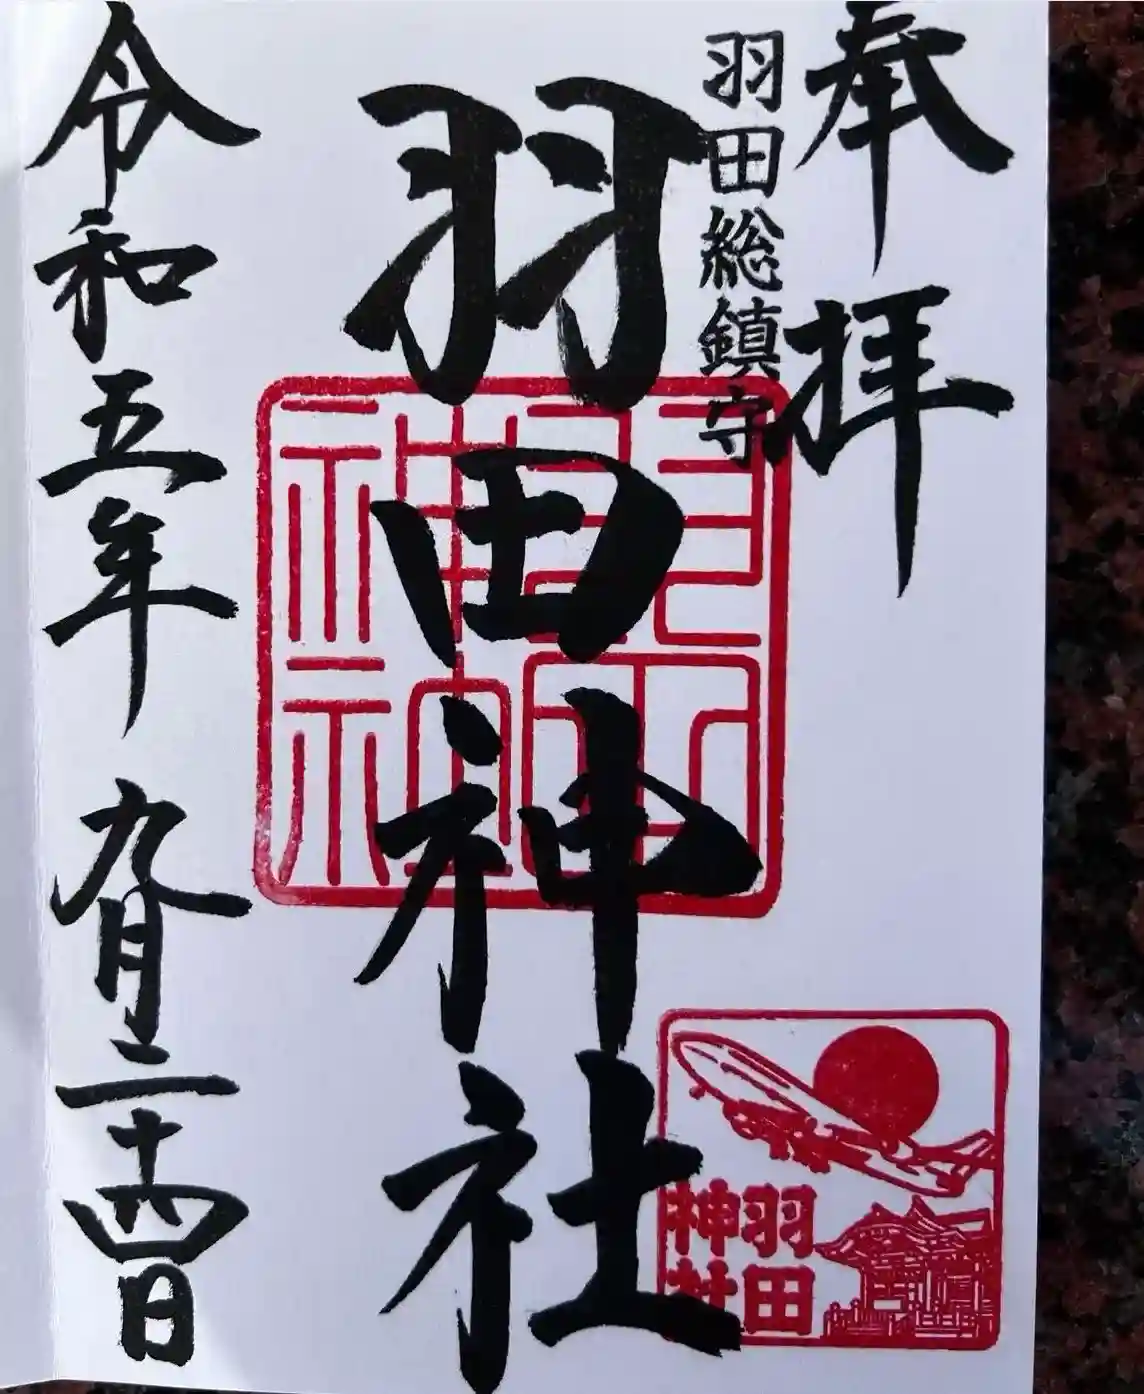 奉拝
羽田総鎮守
羽田神社
令和五年 九月二十四日
羽田
神社